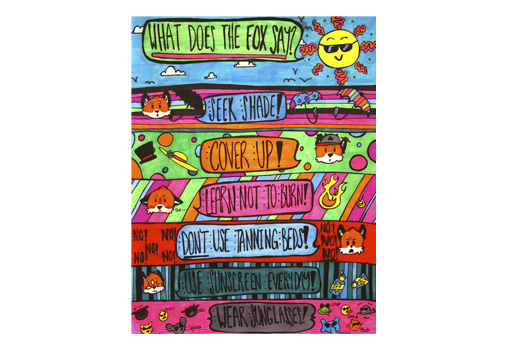 WHAT DOES THE FOX SAY?
SEEK SHADE!
COVER UP!
LEARN NOT TO BURN!
NO! NO!
NO!
NO! NO!
DON'T USE TANNING BEDS!
NO! NO!
NO!
USE SUNSCREEN EVERYDAY!
WEAR SUNGLASSES!